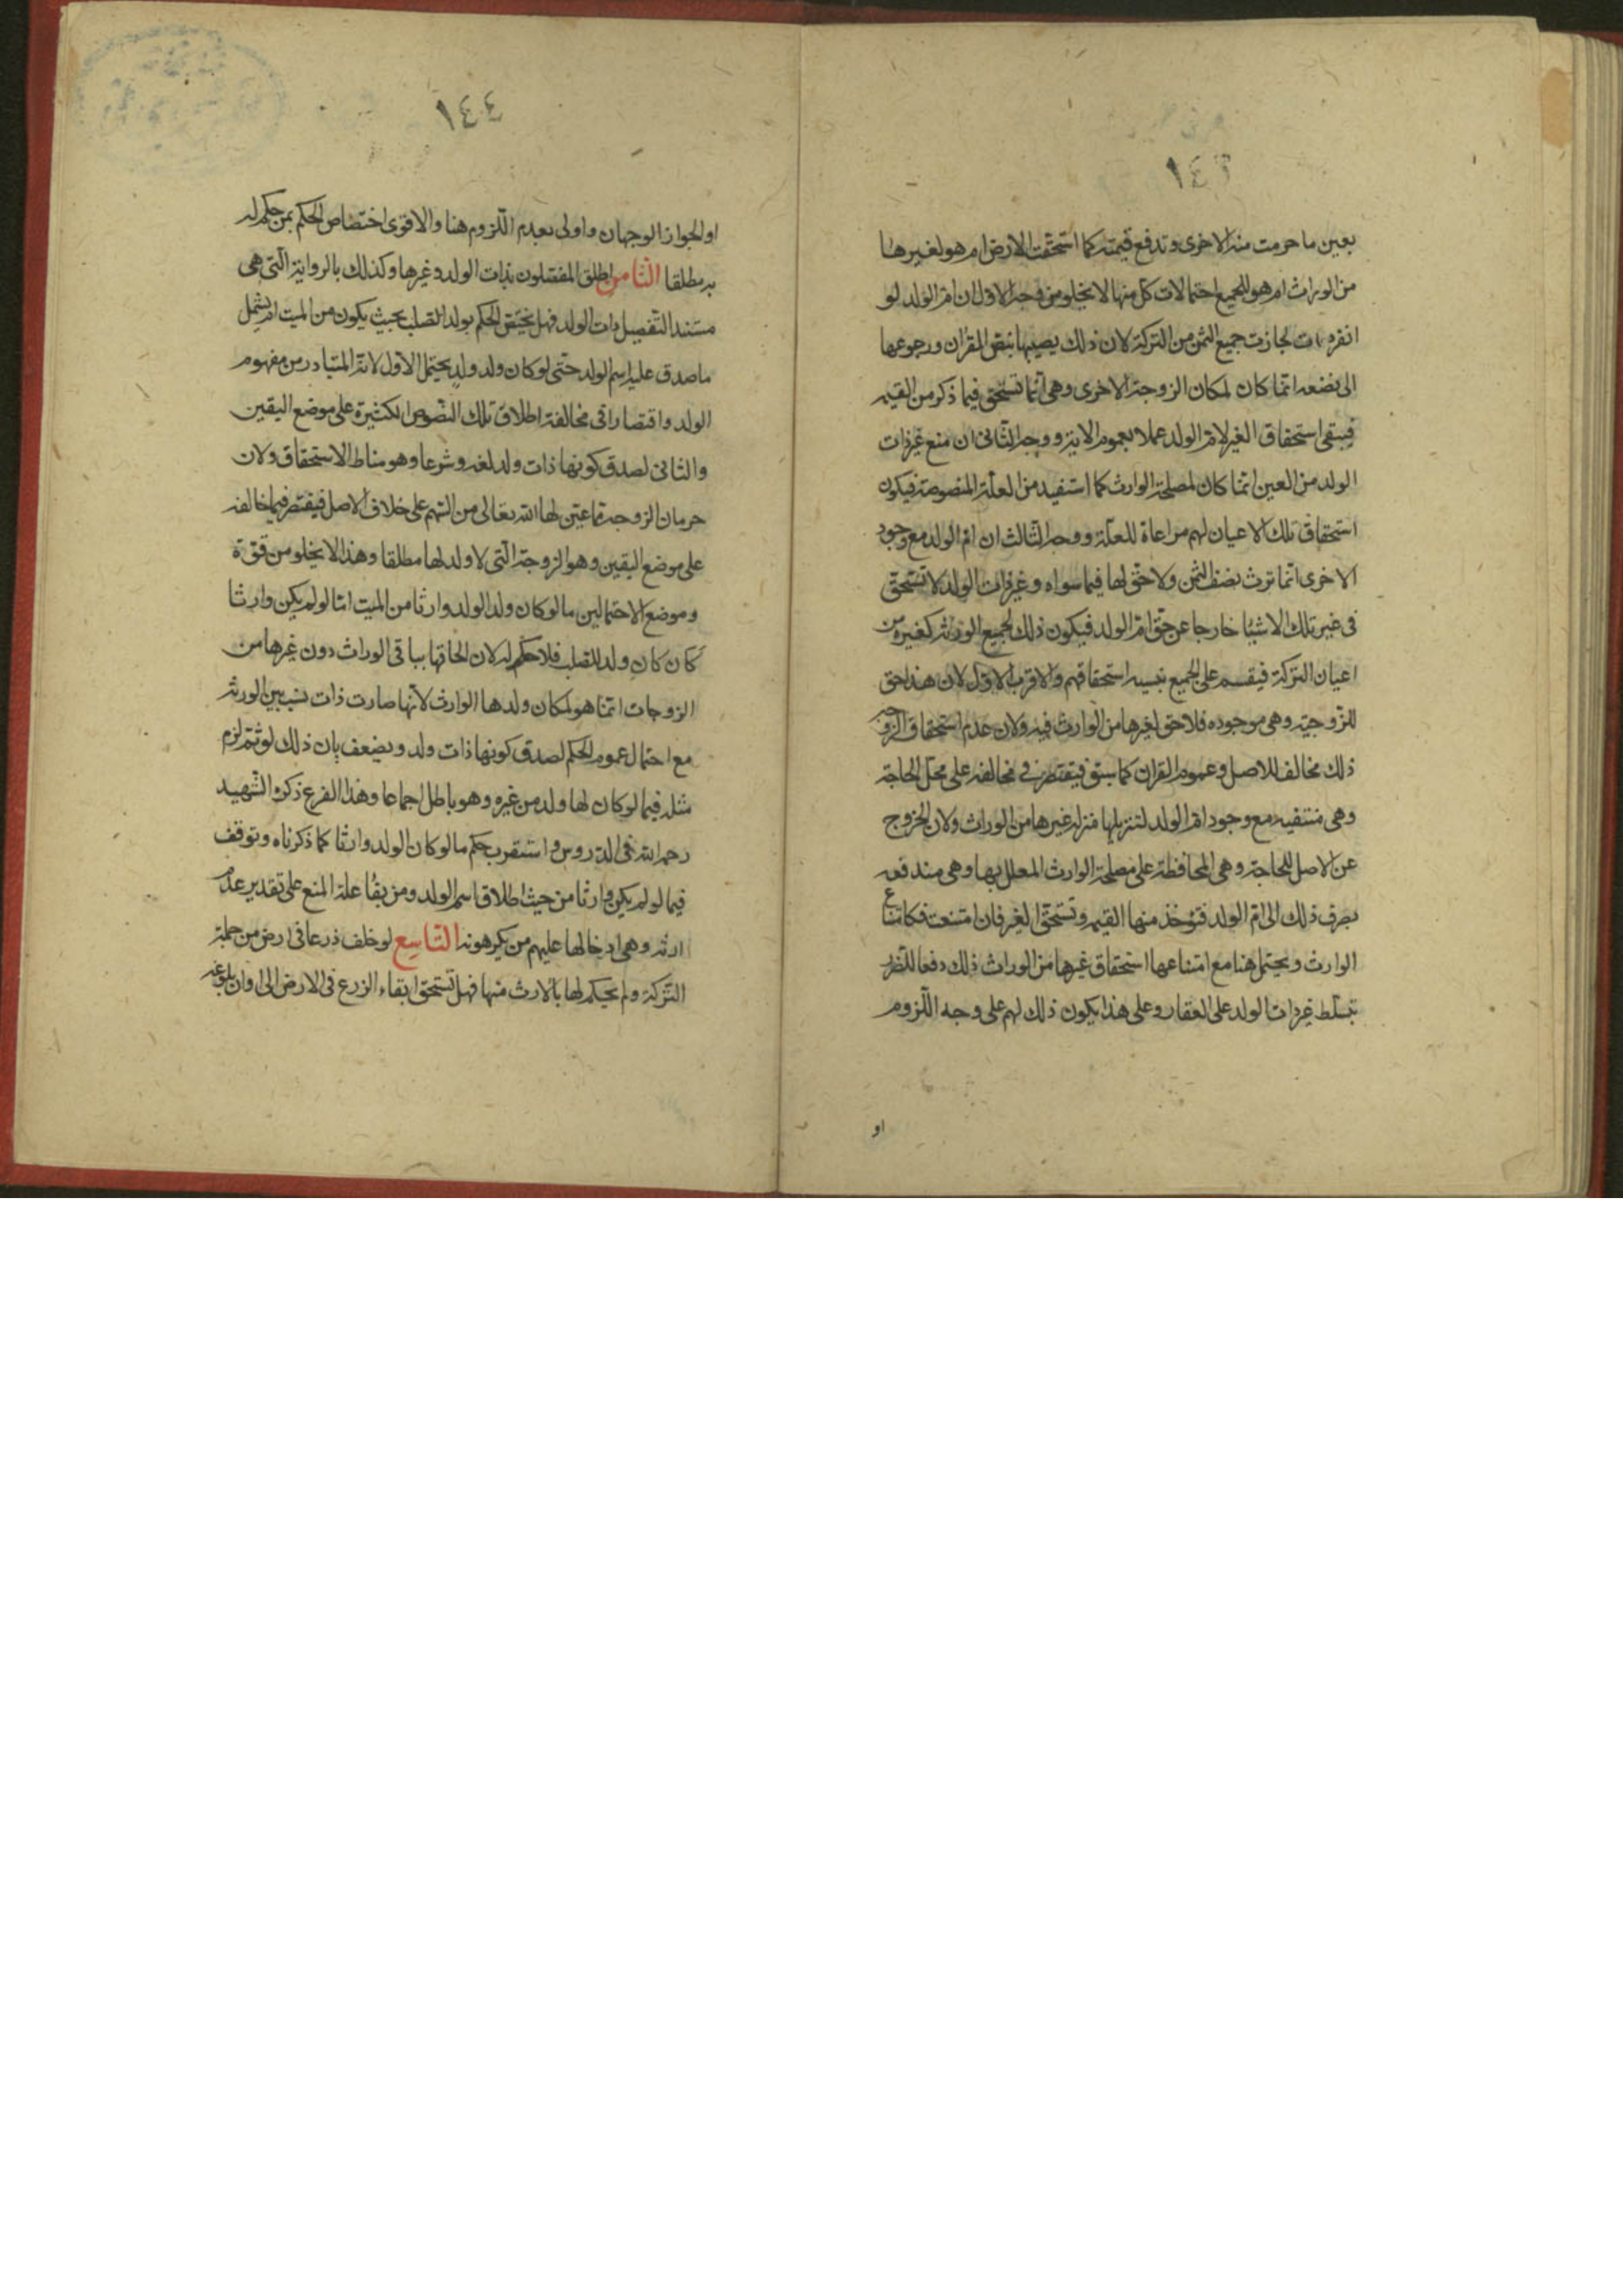 ١٤٣
بعين ما حرمت منه الاخرى وتدفع قيمته كما استحقت الارض ام هو لغيرها
من الوراث ام هو للجميع احتمالات كل منها لا يخلو من وجه الاول ان ام الولد لو
انفردت لجازت جميع الثمن من التركة لان ذلك يصيبها بنص القران ورجوعها
الى نصفه انما كان لمكان الزوجة الاخرى وهي انما تستحق فيما ذكر من القيمه
فيبقى استحقاق الغير لام الولد عملا بعموم الاية ووجه الثانى ان منع غير ذات
الولد من العين انما كان لمصلحة الوارث كما استفيد من العلة المنصوصة فيكون
استحقاق تلك الاعيان لهم مراعاة للعلة ووجه الثالث ان ام الولد مع وجود
الاخرى انما ترث نصف الثمن ولا حق لها فيما سواه وغير ذات الولد لا تستحق
فى غير تلك الاشيا خارجا عن حق ام الولد فيكون ذلك لجميع الورثة كغيره من
اعيان التركة فيقسم على الجميع بنسبه استحقاقهم والاقرب الاول لان هذا حق
للزوجيه وهي موجوده فلا حق لغيرها من الوارث فيه ولان عدم استحقاق الزوجه
ذلك مخالف للاصل وعموم القران كما سبق فيقتصر فى مخالفه على محل الحاجة
وهى منتفيه مع وجود ام الولد لتنزيلها منزله غيرها من الوراث ولان الخروج
عن الاصل للحاجة وهي المحافظة على مصلحة الوارث المعلل بها وهى مندفعه
بصرف ذلك الى ام الولد فتؤخذ منها القيمه وتستحق الغير فان امتنعت فكامتناع
الوارث ويحتمل هنا مع امتناعها استحقاق غيرها من الوراث ذلك دفعا للضرر
بتسلط غير ذات الولد على العقار وعلى هذا يكون ذلك لهم على وجه اللزوم
او
١٤٤
او الجواز الوجهان واولى بعدم اللزوم هنا والاقوى اختصاص الحكم بمن حكم له
به مطلقا الثامن اطلق المفصلون بذات الولد وغيرها وكذلك بالرواية التى هى
مستند التفصيل ذات الولد فهل يختص الحكم بولد الصلب بحيث يكون من الميت ام يشمل
ما صدق عليه اسم الولد حتى لو كان ولد ولد يحتمل الاول لانه المتبادر من مفهوم
الولد واقتصارا فى مخالفة اطلاق تلك النصوص الكثيرة على موضع اليقين
والثانى لصدق كونها ذات ولد لغه وشرعا وهو مناط الاستحقاق ولان
حرمان الزوجة مما عين لها الله تعالى من السهم على خلاف الاصل فيقتصر فيما خالفه
على موضع اليقين وهو الزوجة التى لا ولد لها مطلقا وهذا لا يخلو من قوة
وموضع الاحتمالين ما لو كان ولد الولد وارثا من الميت اما لو لم يكن وارثا
كان كان ولد للصلب فلا حكم له لان الحاقها بباقى الوراث دون غيرها من
الزوجات انما هو لمكان ولدها الوارث لانها صارت ذات نسب بين الورثه
مع احتمال عموم الحكم لصدق كونها ذات ولد ويضعف بان ذلك لو تم لزم
مثله فيما لو كان لها ولد من غيره وهو باطل اجماعا وهذا الفرع ذكره الشهيد
رحمه الله فى الدروس واستقرب حكم ما لو كان الولد وارثا كما ذكرناه وتوقف
فيما لو لم يكن وارثا من حيث اطلاق اسم الولد ومن بقا علة المنع على تقدير عدم
ارثه وهى ادخالها عليهم من يكرهونه التاسع لو خلف ذرعا فى ارض من جملة
التركة ولم يحكم لها بالارث منها فهل تستحق ابقاء الزرع فى الارض الى اوان بلوغه